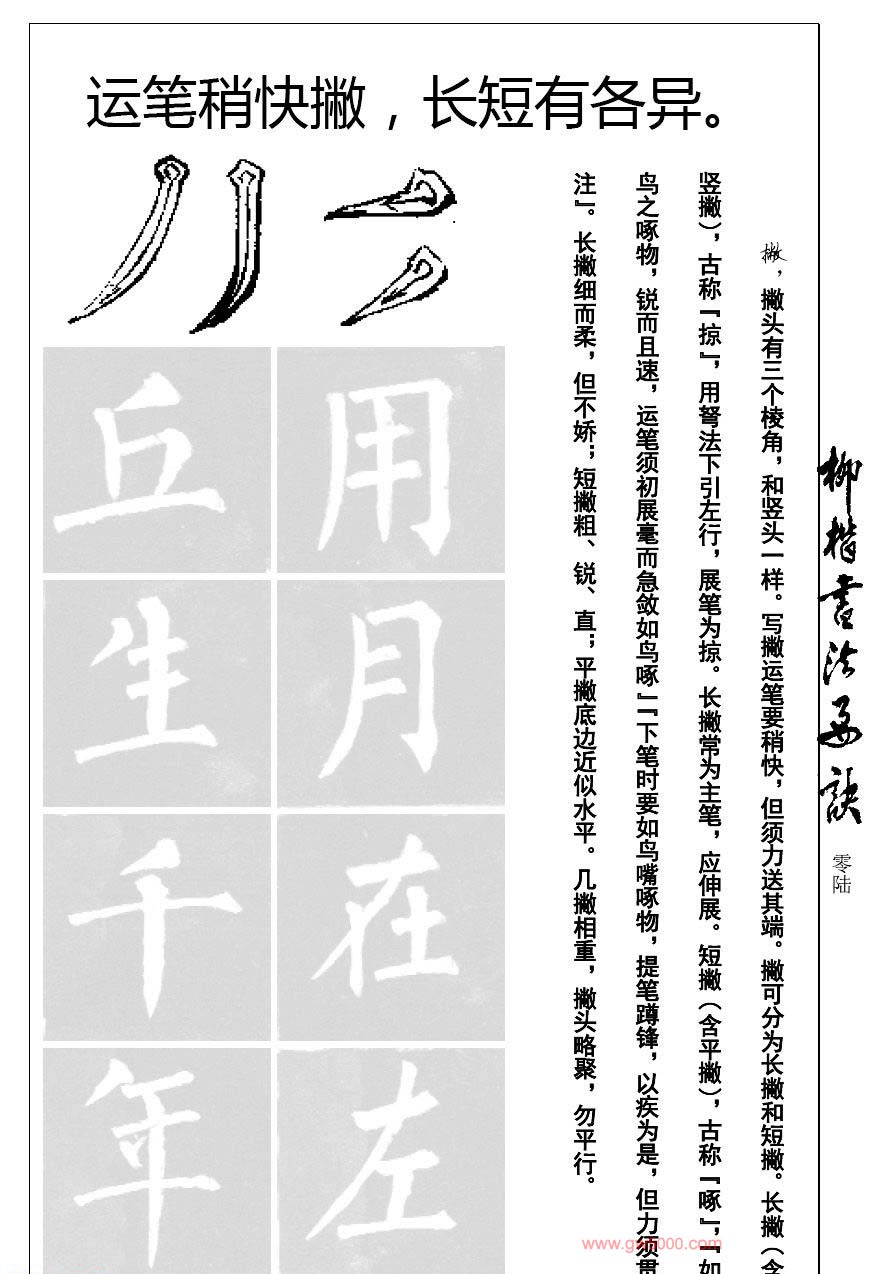 运笔稍快撇，长短有各异。
撇，撇头有三个棱角，和竖头一样。写撇运笔要稍快，但须力送其端。撇可分为长撇和短撇。长撇（含
竖撇），古称『掠』，用弩法下引左行，展笔为掠。长撇常为主笔，应伸展。短撇（含平撇），古称『啄』，『如
鸟之啄物，锐而且速，运笔须初展毫而急敛如鸟啄』『下笔时要如鸟嘴啄物，提笔蹲锋，以疾为是，但力须贯
注』。长撇细而柔，但不娇；短撇粗、锐、直；平撇底边近似水平。几撇相重，撇头略聚，勿平行。
用
月
在
左
丘
生
千
年
柳楷书法要诀
零陆